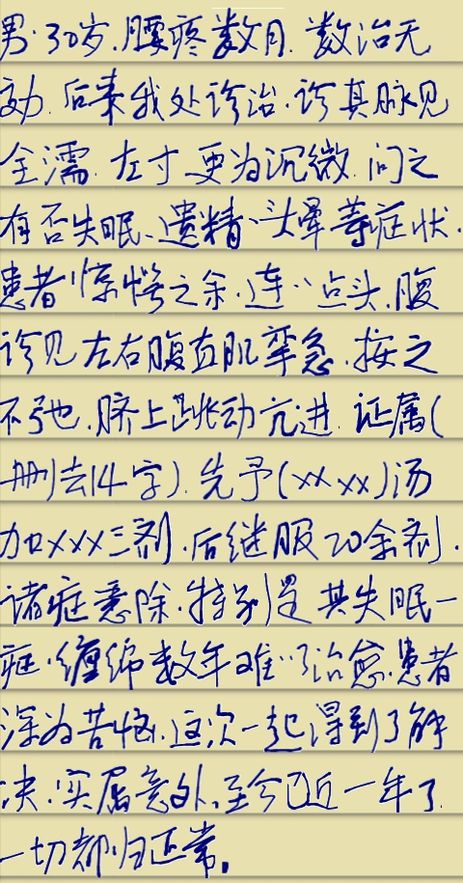 男.30岁.腰疼数月.数治无
効.后来我处诊治.诊其脉见
全濡.左寸更为沉微.问之
有否失眠、遗精、头晕等症状.
患者惊愕之余.连〃点头.腹
诊见左右腹直肌挛急.按之
不弓也.脐上跳动亢进.证属(
删去14字).先予(××××)汤
加×××三剂.后继服20余剂.
诸症悉除.特别是其失眠一
症.缠绵数年难以治愈.患者
深为苦恼.这次一起得到了解
决.实属意外.至今已近一年了.
一切都归正常。